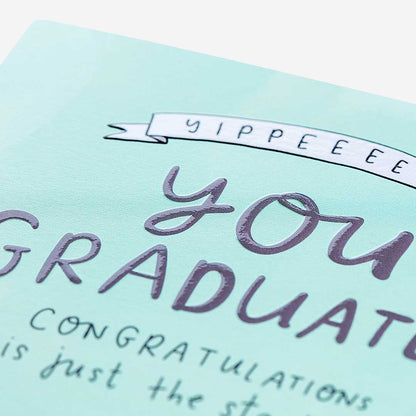 YIPPEEEE
you
GRADUATE
CONGRATULATIONS
is just the sta